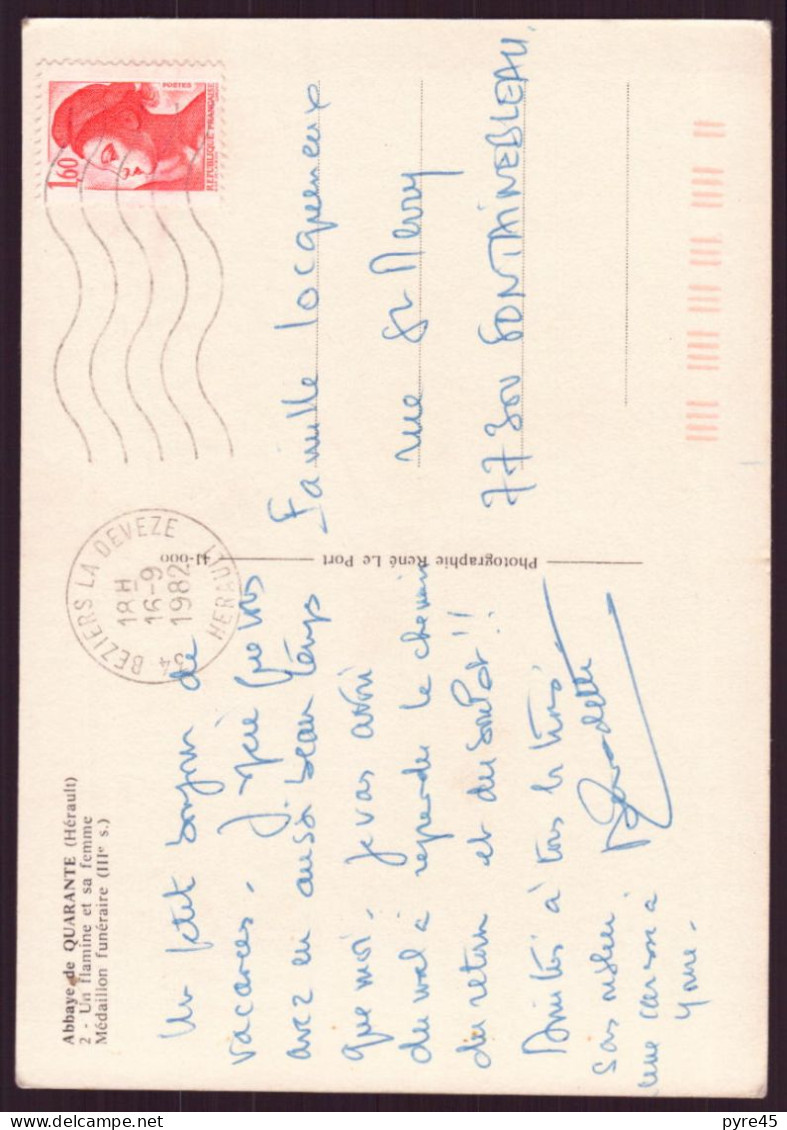 Abbaye de QUARANTE (Hérault)
2 - Un flamine et sa femme
Médaillon funéraire (IIIe s.)
Un petit bonjour de
vacances. J'espère que vous
avez eu aussi beau temps
que moi. Je vais avoir
du mal à reprendre le chemin
du retour et du boulot !!
Amitiés à tous les trois
sans oublier
une caresse à
Bernadette
Photographie René Le Port
41-000
34 BEZIERS LA DEVEZE
HERAULT
18H
16-9
1982
1,60
POSTES
REPUBLIQUE FRANÇAISE
Famille Locqueneux
rue St Merry
77300 FONTAINEBLEAU.
pyre45